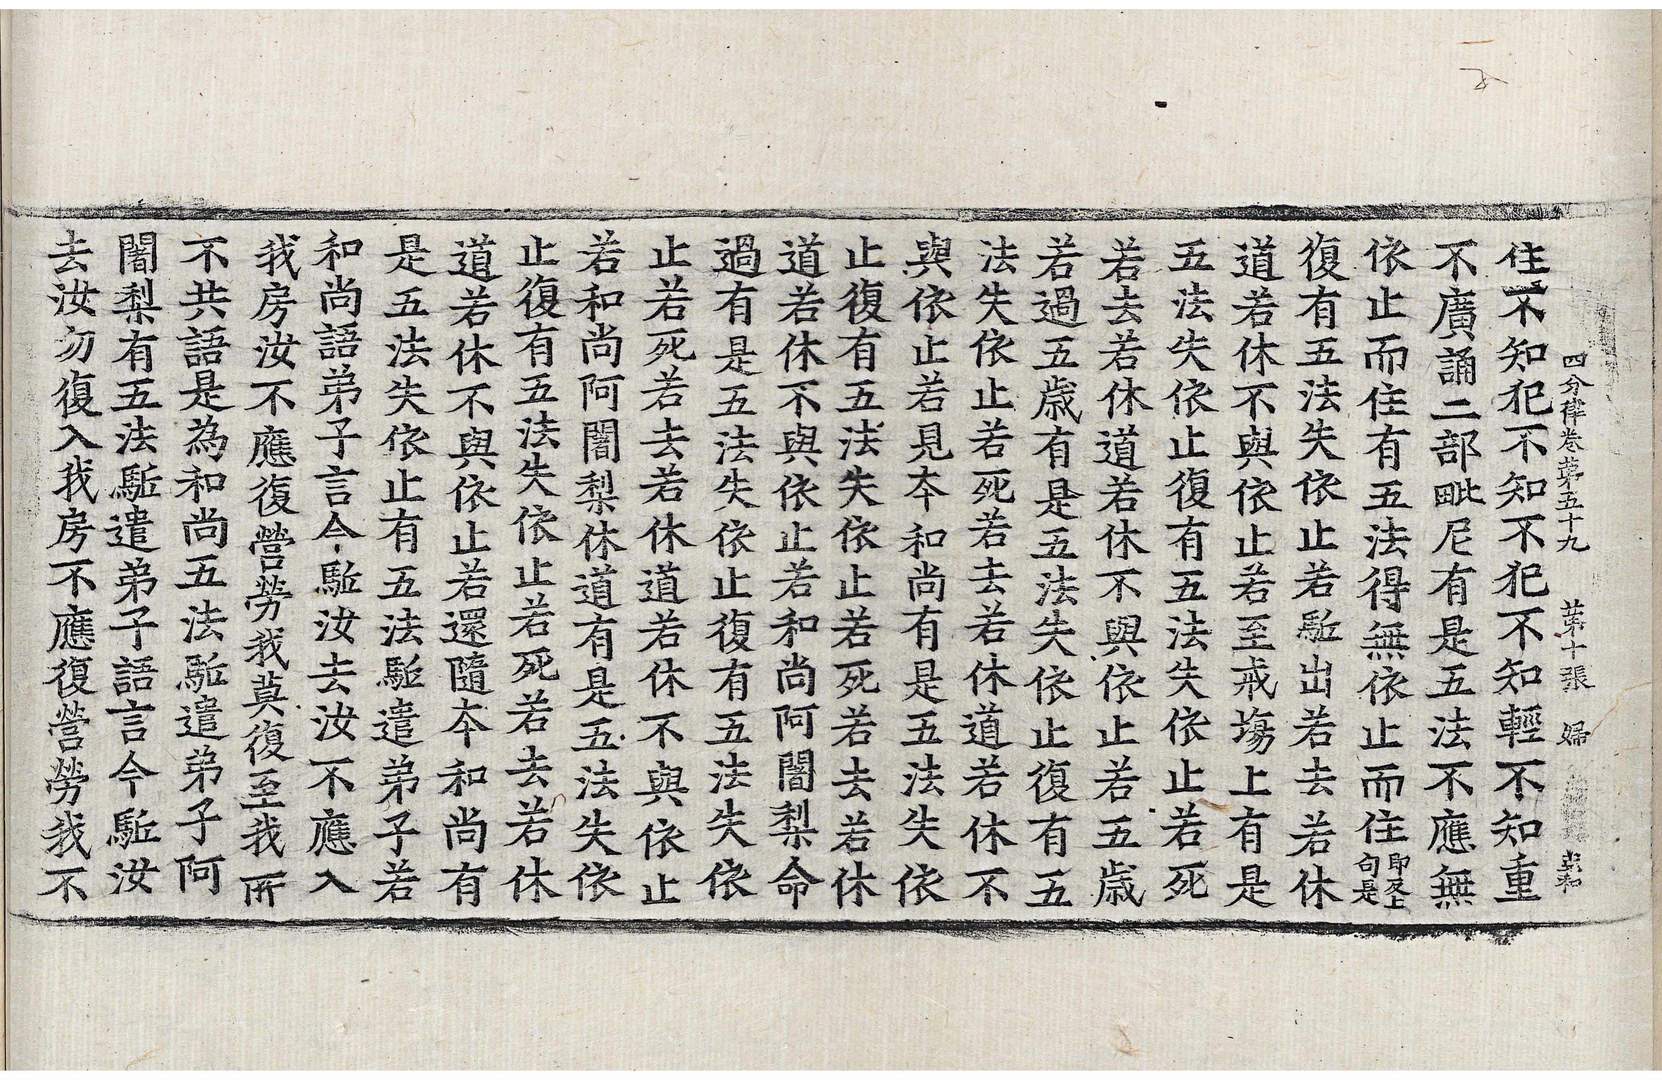 四分律卷第五十九 第十張 婦
住不知犯不知不犯不知輕不知重
不廣誦二部毗尼有是五法不應無
依止而住有五法得無依止而住即反上句是
復有五法失依止若駈出若去若休
道若休不與依止若至戒塲上有是
五法失依止復有五法失依止若死
若去若休道若休不與依止若五歳
若過五歳有是五法失依止復有五
法失依止若死若去若休道若休不
與依止若見夲和尚有是五法失依
止復有五法失依止若死若去若休
道若休不與依止若和尚阿闍梨命
過有是五法失依止復有五法失依
止若死若去若休道若休不與依止
若和尚阿闍梨休道有是五法失依
止復有五法失依止若死若去若休
道若休不與依止若還隨夲和尚有
是五法失依止有五法駈遣弟子若
和尚語弟子言今駈汝去汝不應入
我房汝不應復營勞我莫復至我所
不共語是為和尚五法駈遣弟子阿
闍梨有五法駈遣弟子語言今駈汝
去汝勿復入我房不應復營勞我不